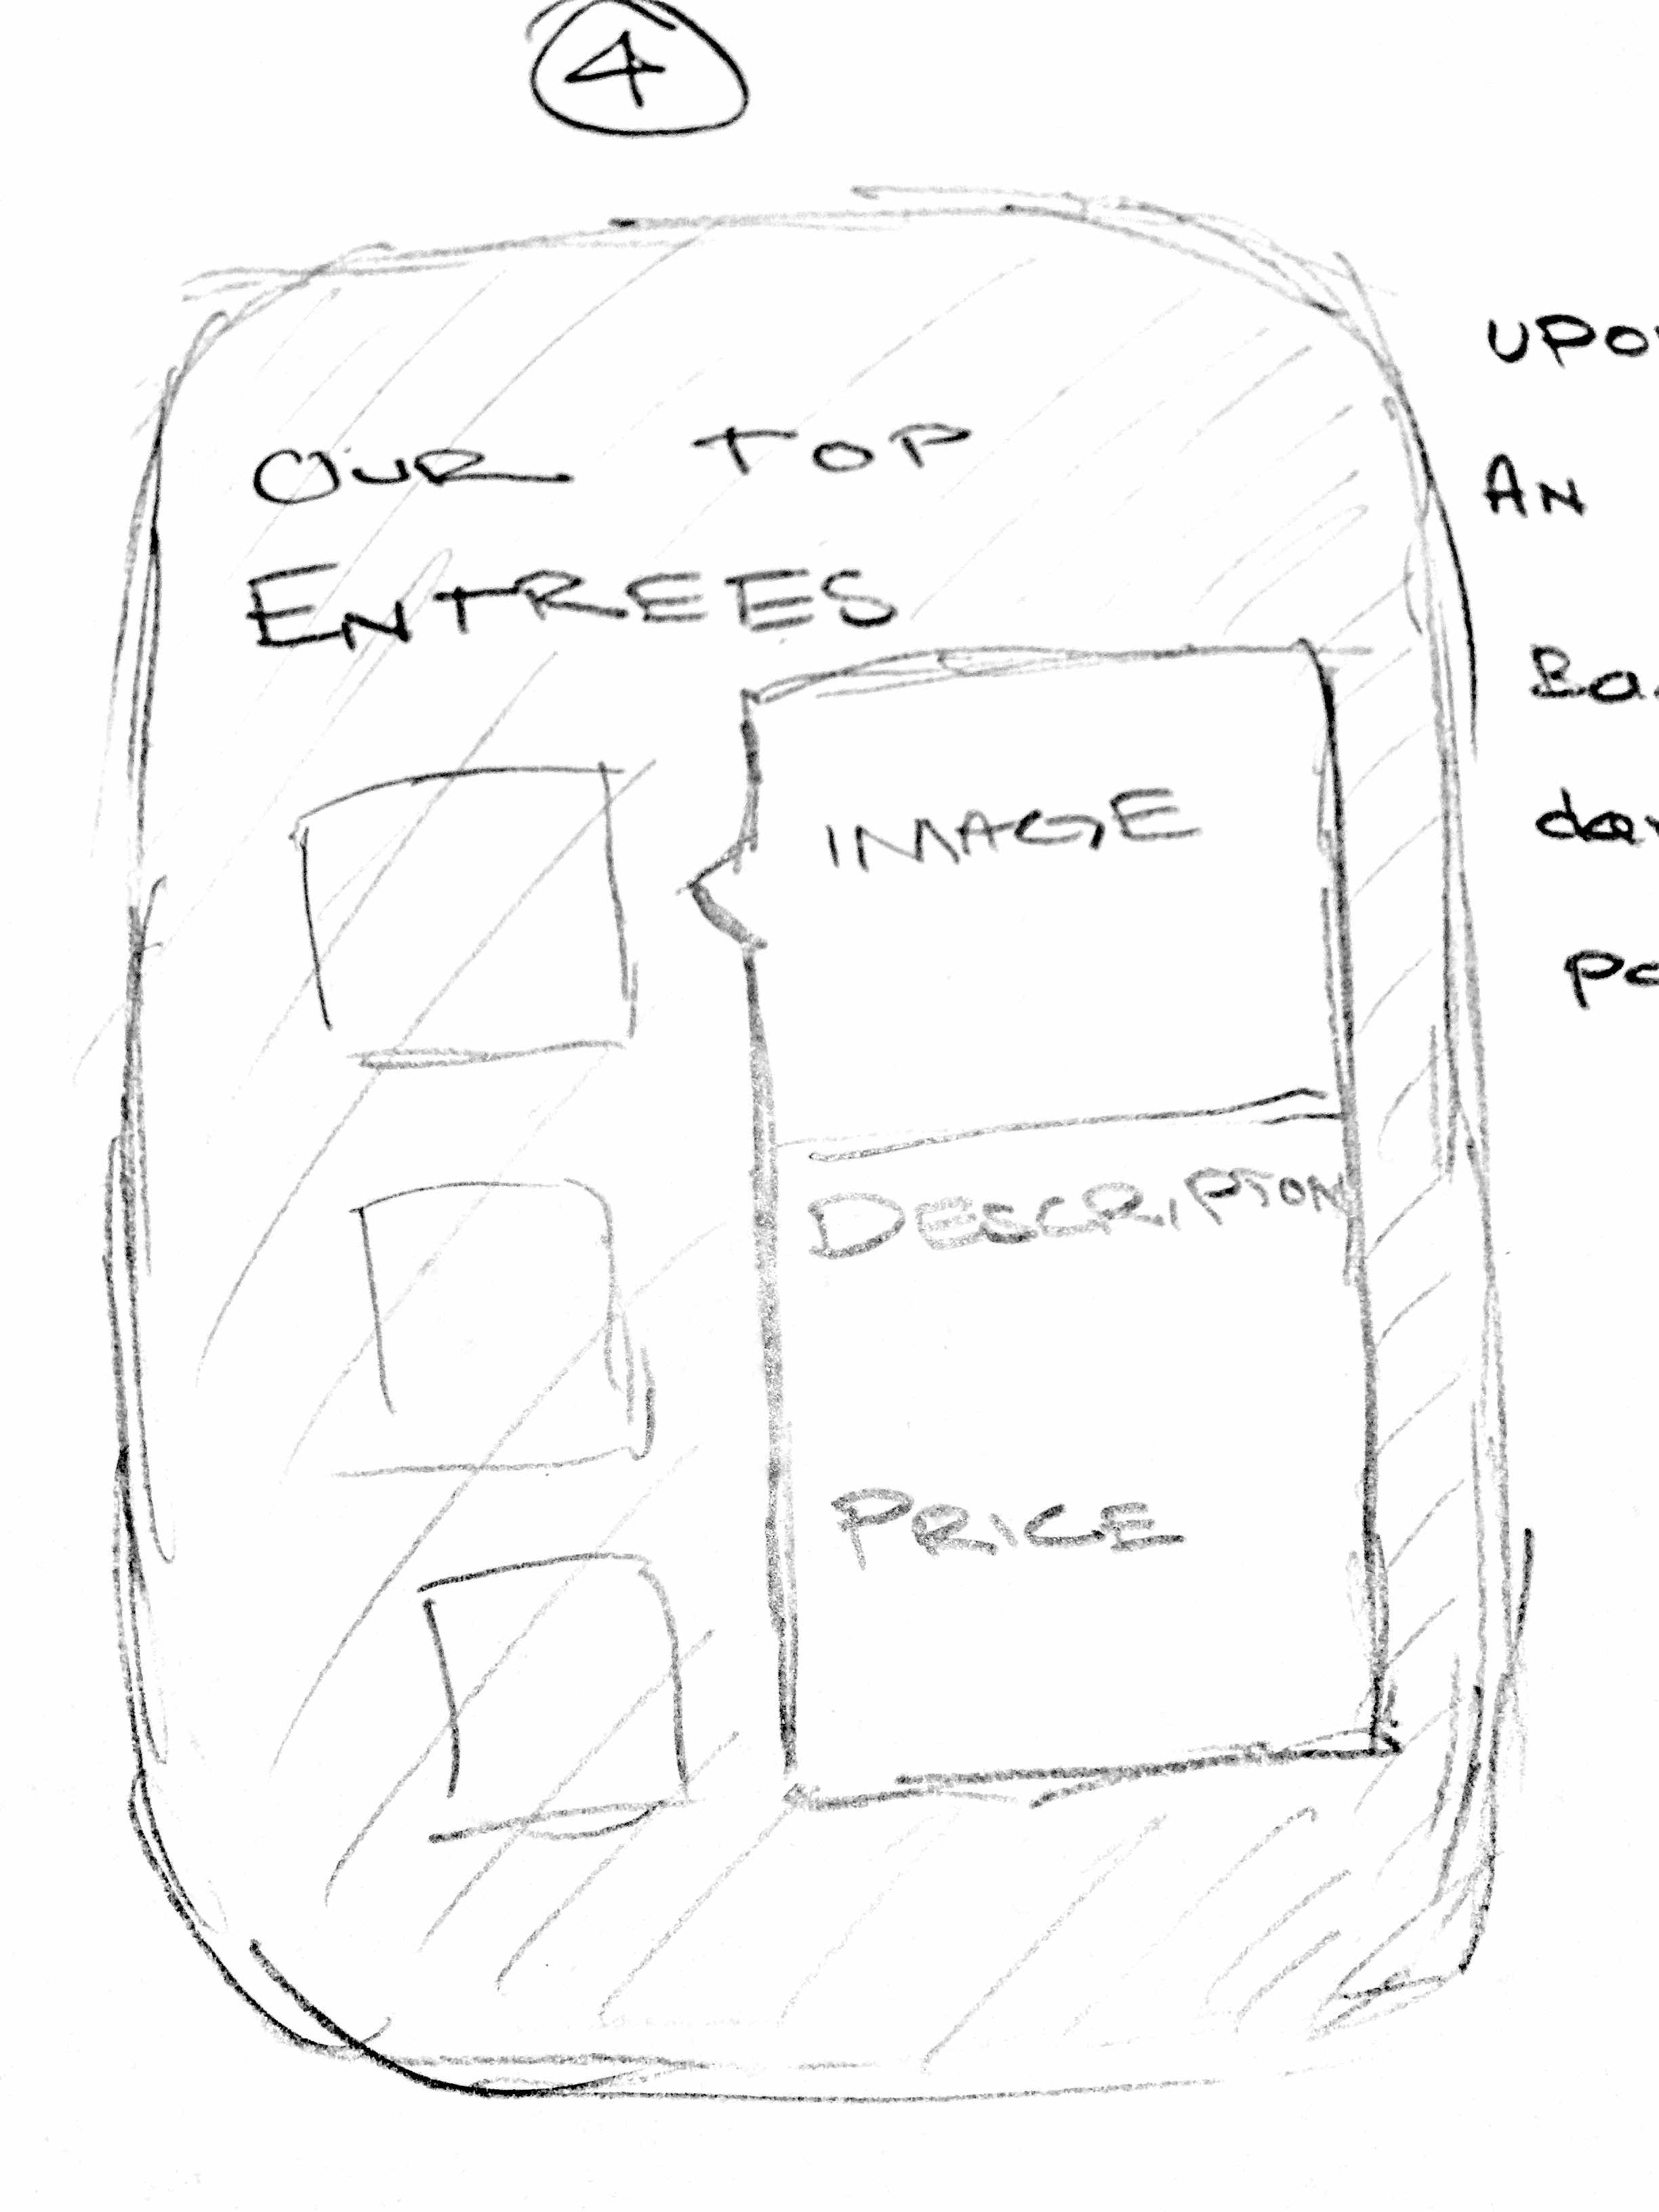 4
OUR TOP
ENTREES
IMAGE
DESCRIPTION
PRICE
AN